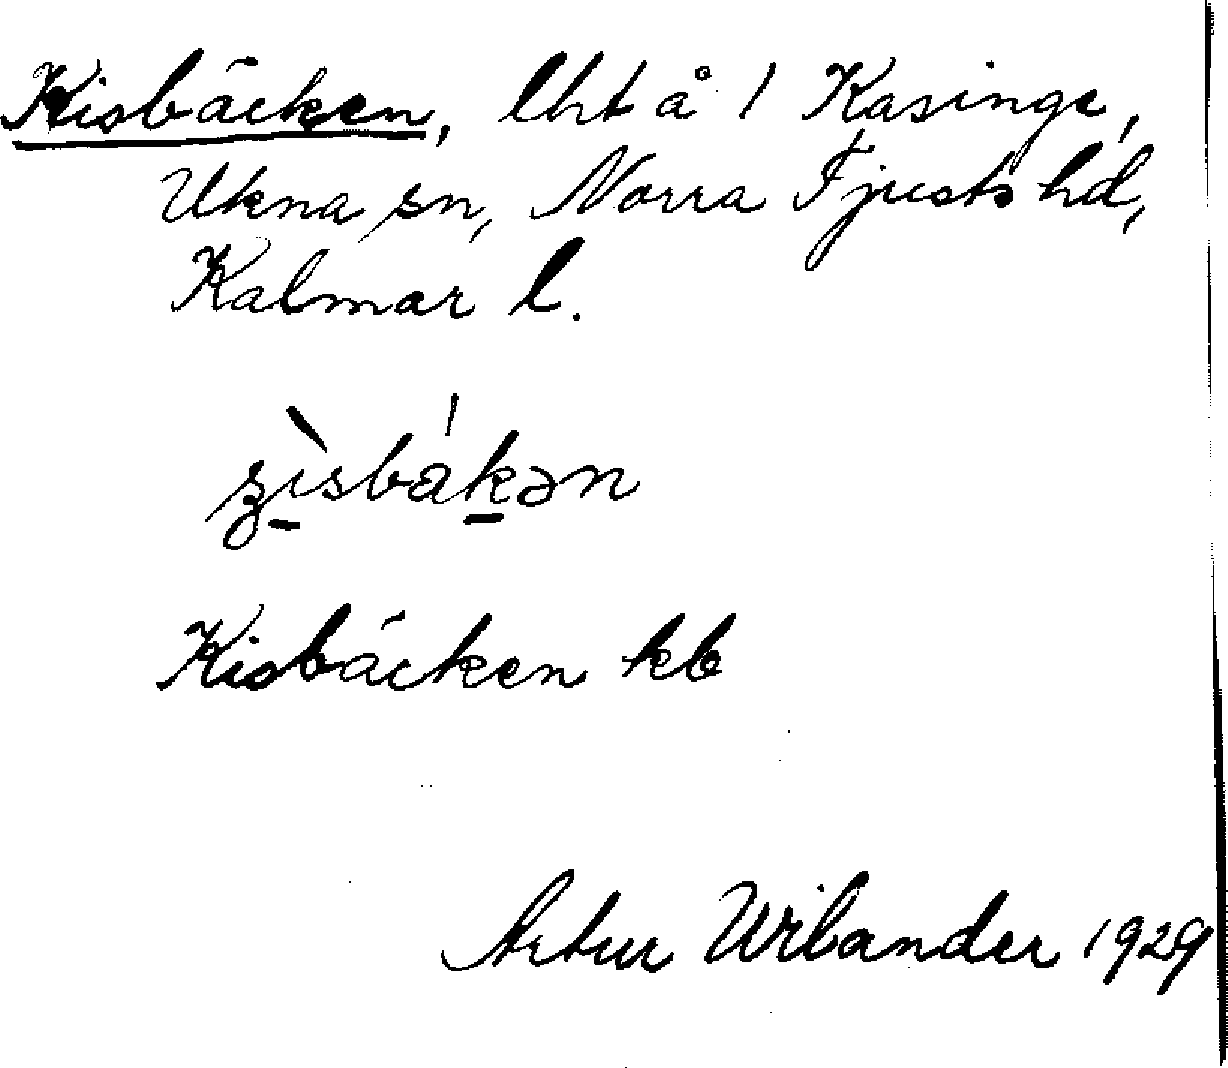 Kisbäcken, lht å 1 Kasinge,
Ukna sn, Norra Tjusts hd,
Kalmar l.
Kisbäcken kb
Artur Wilander 1929